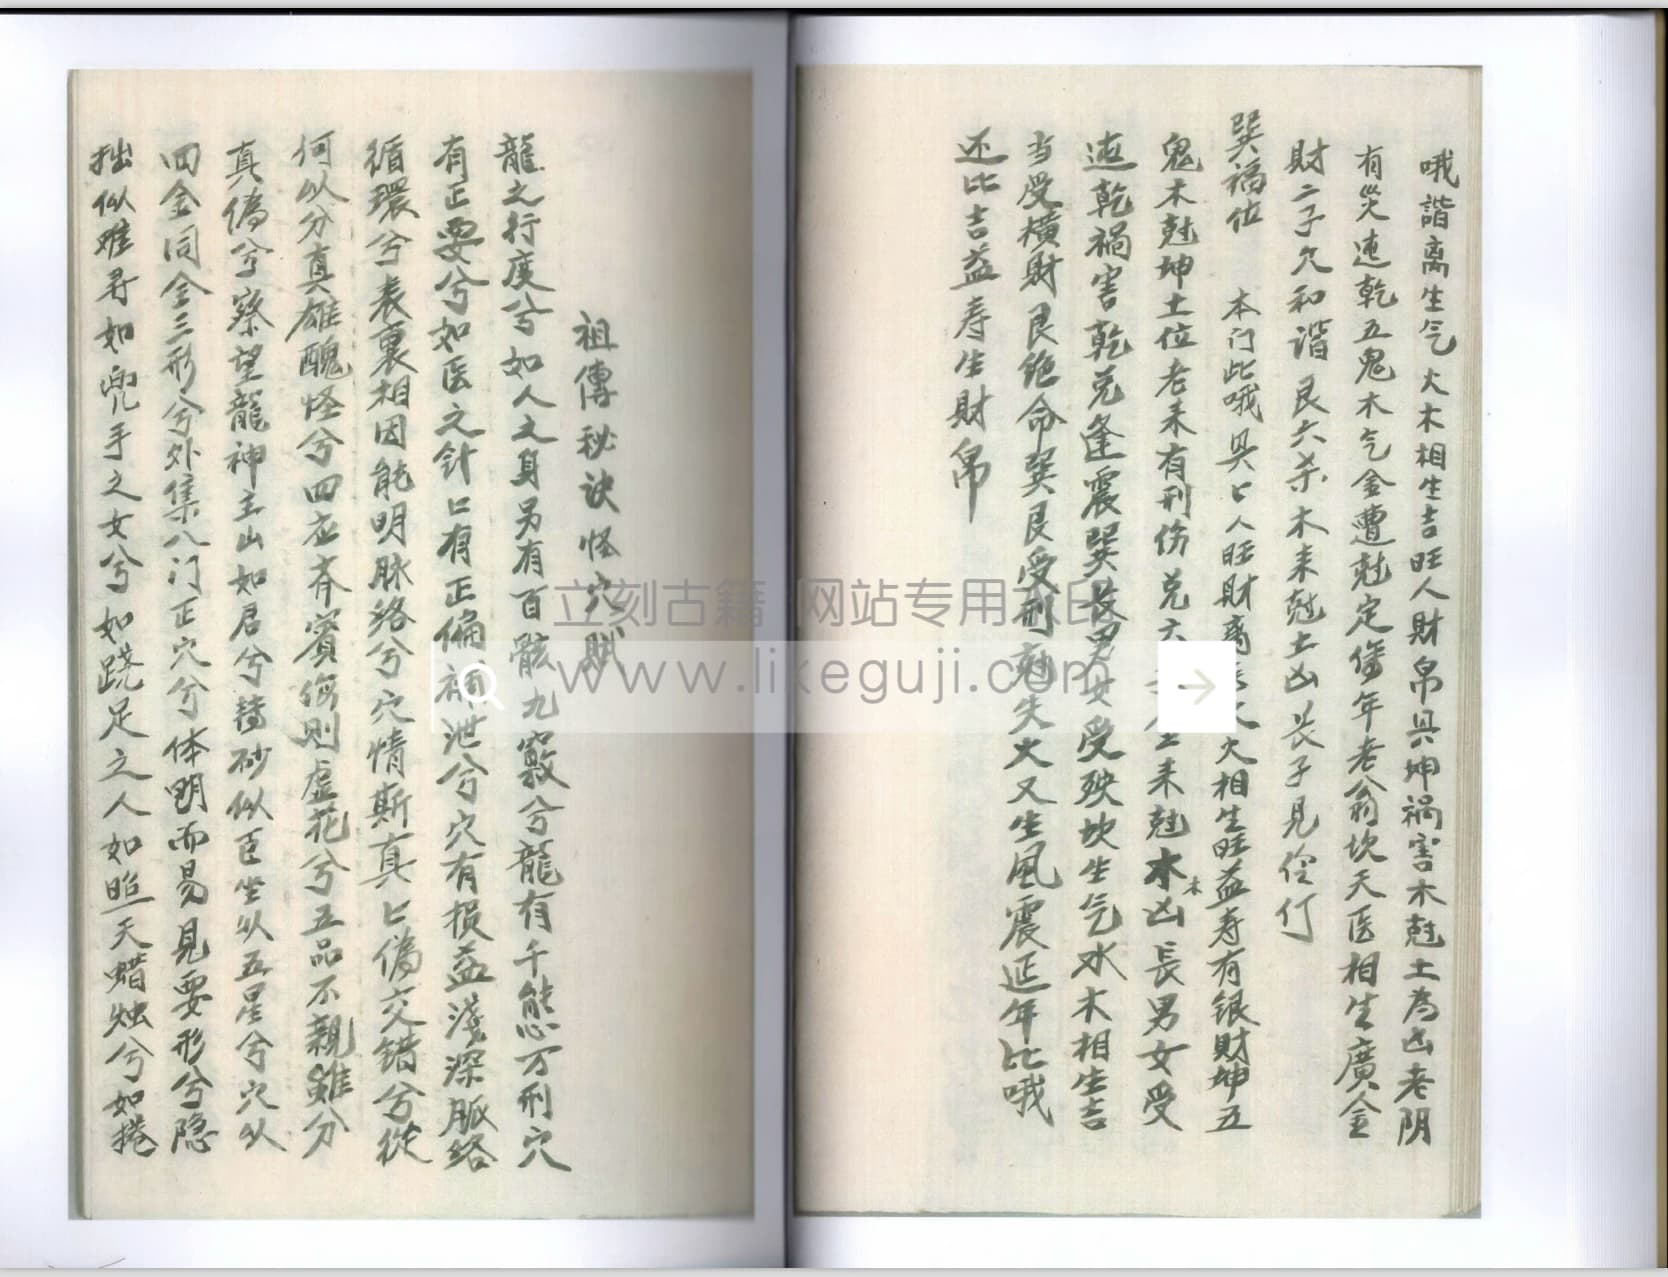 哦諧离生气火木相生吉旺人財帛興坤禍害木尅土為凶老阴
有災連乾五鬼木气金遭尅定傷年老翁坎天医相生廣金
財二子欠和諧艮六杀木来尅土凶长子見伶仃
巽福位 本门比哦興口人旺財离天火相生旺益寿有銀財坤五
鬼木尅坤土位老来有刑伤兑六来尅木木凶長男女受
連乾禍害乾兑逢震巽長男女受殃坎生气水木相生吉
当受横財艮绝命巽艮受刑尅失火又生風震延年比哦
还比吉益寿生財帛
祖傳秘诀怪穴賦
龍之行度兮如人之身另有百骸九竅兮龍有千態万刑穴
有正要兮如医之针口有正偏補泄兮穴有损益淺深脈络
循環兮表裏相因能明脉络兮穴情斯真匕偽交错兮從
何以分真雄醜怪兮四应齐賓傷则虚花兮五品不親雖分
真偽兮察望龍神主山如君兮替砂似臣坐以五星兮穴以
四金同金三形兮外集八门正穴兮体明而易見要形兮隐
拙似难尋如兜手之女兮如跷足之人如照天蜡烛兮如捲
立刻古籍 网站专用水印
www.likeguji.com